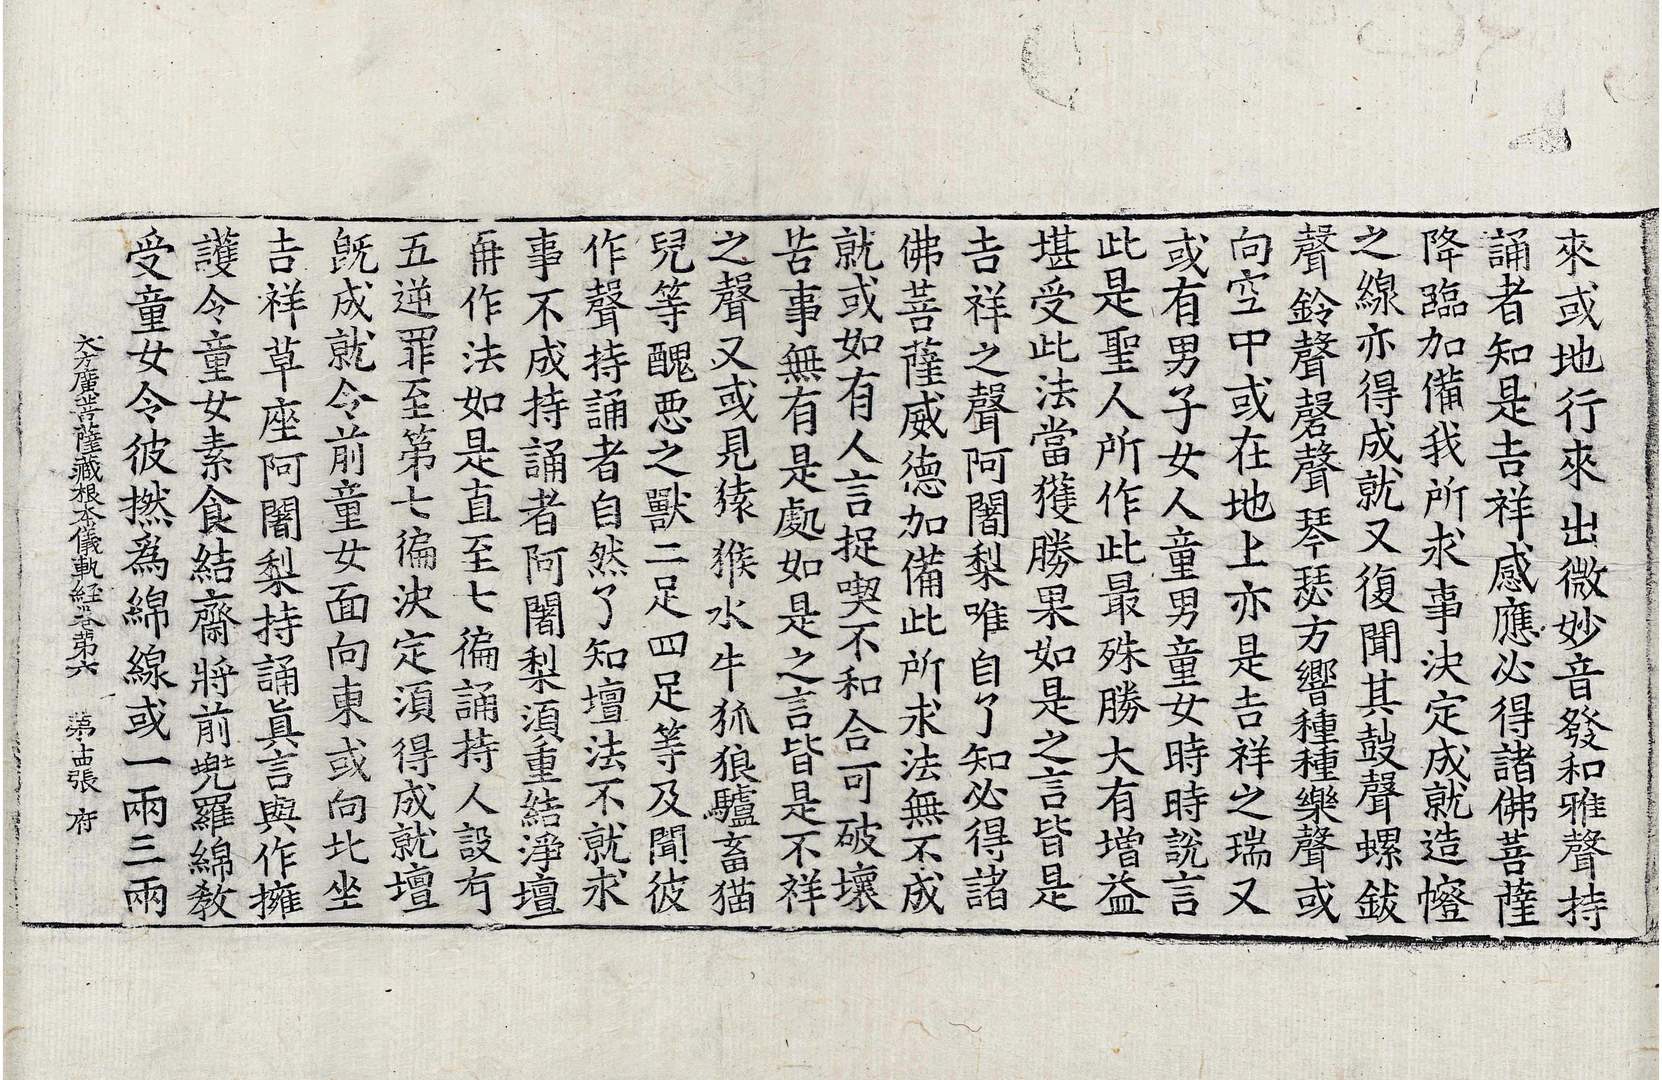 來或地行來出微妙音發和雅聲持
誦者知是吉祥感應必得諸佛菩薩
降臨加備我所求事決定成就造㡧
之線亦得成就又復聞其鼓聲螺鈸
聲鈴聲磬聲琴瑟方響種種樂聲或
向空中或在地上亦是吉祥之瑞又
或有男子女人童男童女時時說言
此是聖人所作此最殊勝大有增益
堪受此法當獲勝果如是之言皆是
吉祥之聲阿闍梨唯自了知必得諸
佛菩薩威德加備此所求法無不成
就或如有人言捉喫不和合可破壞
苦事無有是處如是之言皆是不祥
之聲又或見猿猴水牛狐狼驢畜猫
兒等醜惡之獸二足四足等及聞彼
作聲持誦者自然了知壇法不就求
事不成持誦者阿闍梨須重結淨壇
再作法如是直至七徧誦持人設有
五逆罪至第七徧決定須得成就壇
旣成就令前童女面向東或向北坐
吉祥草座阿闍梨持誦眞言與作擁
護令童女素食結齋將前兠羅綿教
受童女令彼撚爲綿線或一兩三兩
大方廣菩薩藏根本儀軌経卷第六 第十四張 府